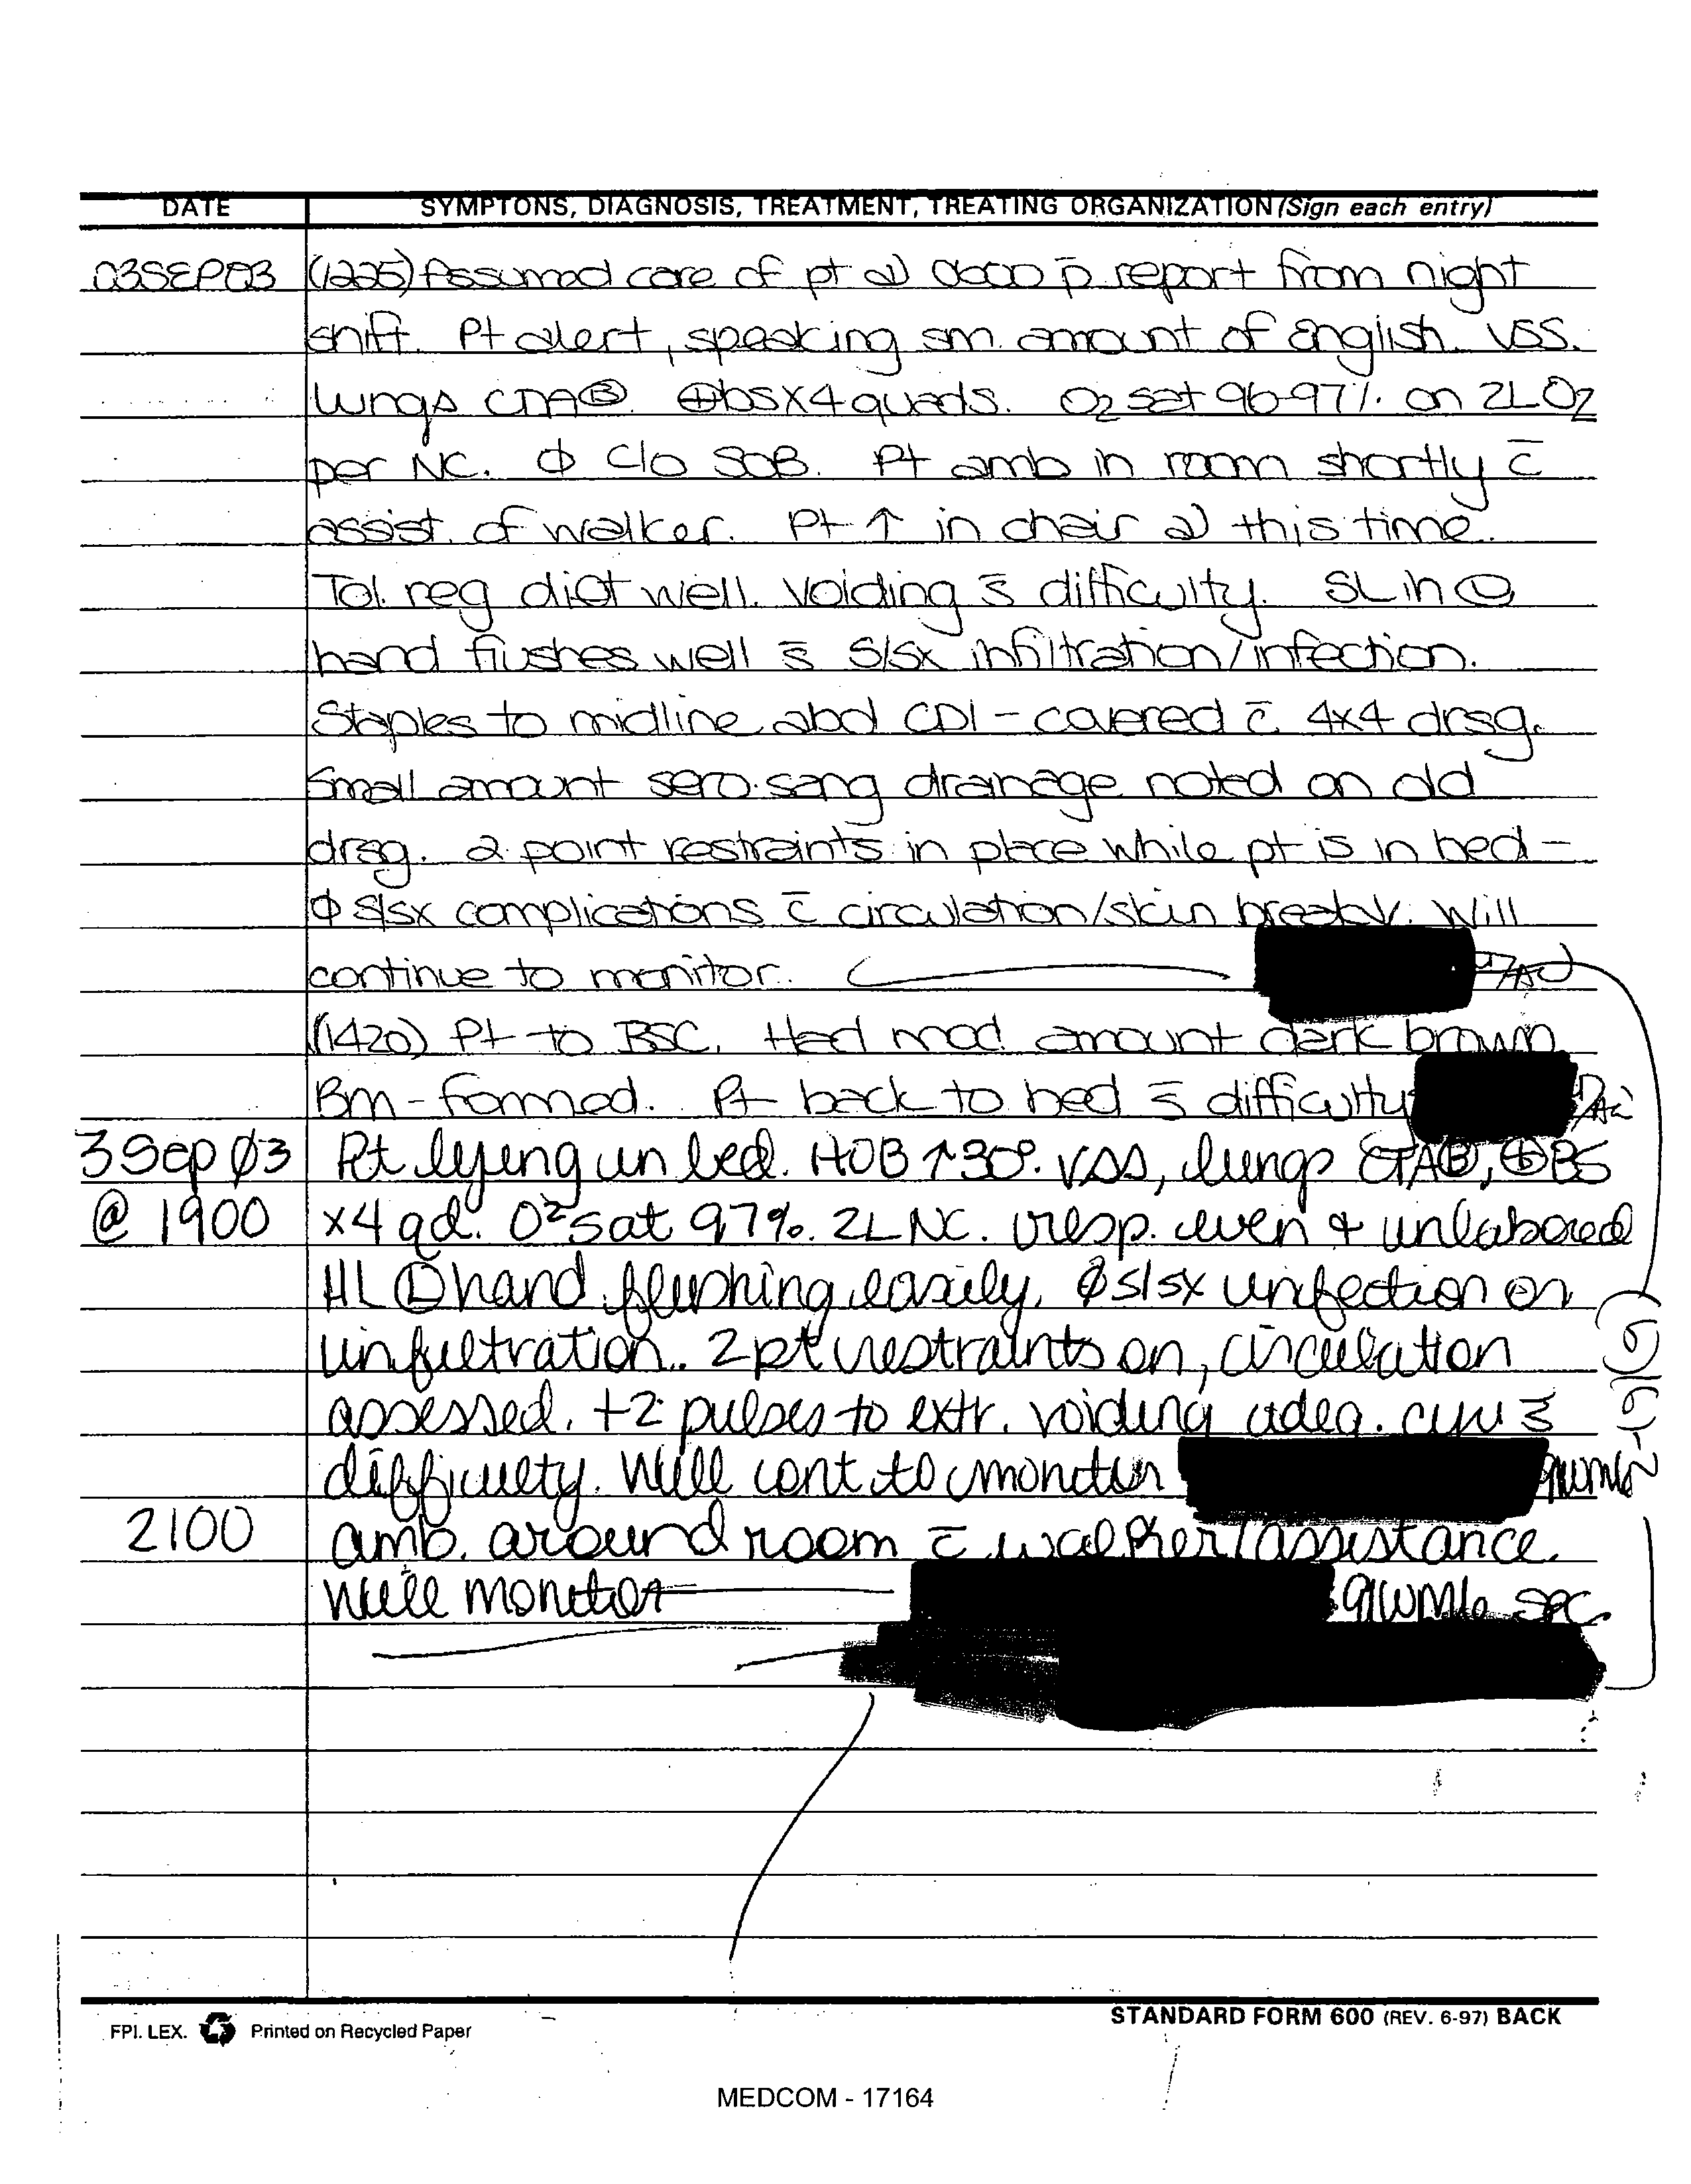 DATE SYMPTONS, DIAGNOSIS, TREATMENT, TREATING ORGANIZATION (Sign each entry)
03SEP03 (1225) Assumed care of pt @ 0600 p̄ report from night
shift. Pt alert, speaking sm. amount of english. VSS.
Lungs CTAⒷ. ⊕bsx4 quads. O2 sat 96-97%. on 2L O2
per NC. Φ c/o SOB. Pt amb in room shortly c̄
assist. of walker. Pt ↑ in chair @ this time.
Tol. reg diet well. Voiding s̄ difficulty. SL in Ⓛ
hand flushes well s̄ s/sx infiltration/infection.
Staples to midline abd CDI - covered c̄ 4x4 drsg.
Small amount sero.sang drainage noted on old
drsg. 2 point restraints in place while pt is in bed -
Φ s/sx complications c̄ circulation/skin Will
continue to monitor.
(1420) Pt to BSC. Had mod amount dark brown
Bm - formed. Pt back to bed s̄ difficulty
3 Sep 03 Pt lying in bed. HOB ↑30°. VSS, lungs CTAⒷ, ⊕BS
@ 1900 x4 qd. O² sat 97%. 2L NC. resp. even + unlabored
HL Ⓛ hand flushing easily. Φ s/sx infection or
infiltration. 2pt restraints on, circulation
assessed. +2 pulses to extr. voiding adeq. cyu s̄
difficulty. Will cont to monitor 91WM6
2100 amb. around room c̄ walker/assistance.
Will monitor 91WM6 SPC.
(b)(6)-2
FPI. LEX. Printed on Recycled Paper
STANDARD FORM 600 (REV. 6-97) BACK
MEDCOM - 17164